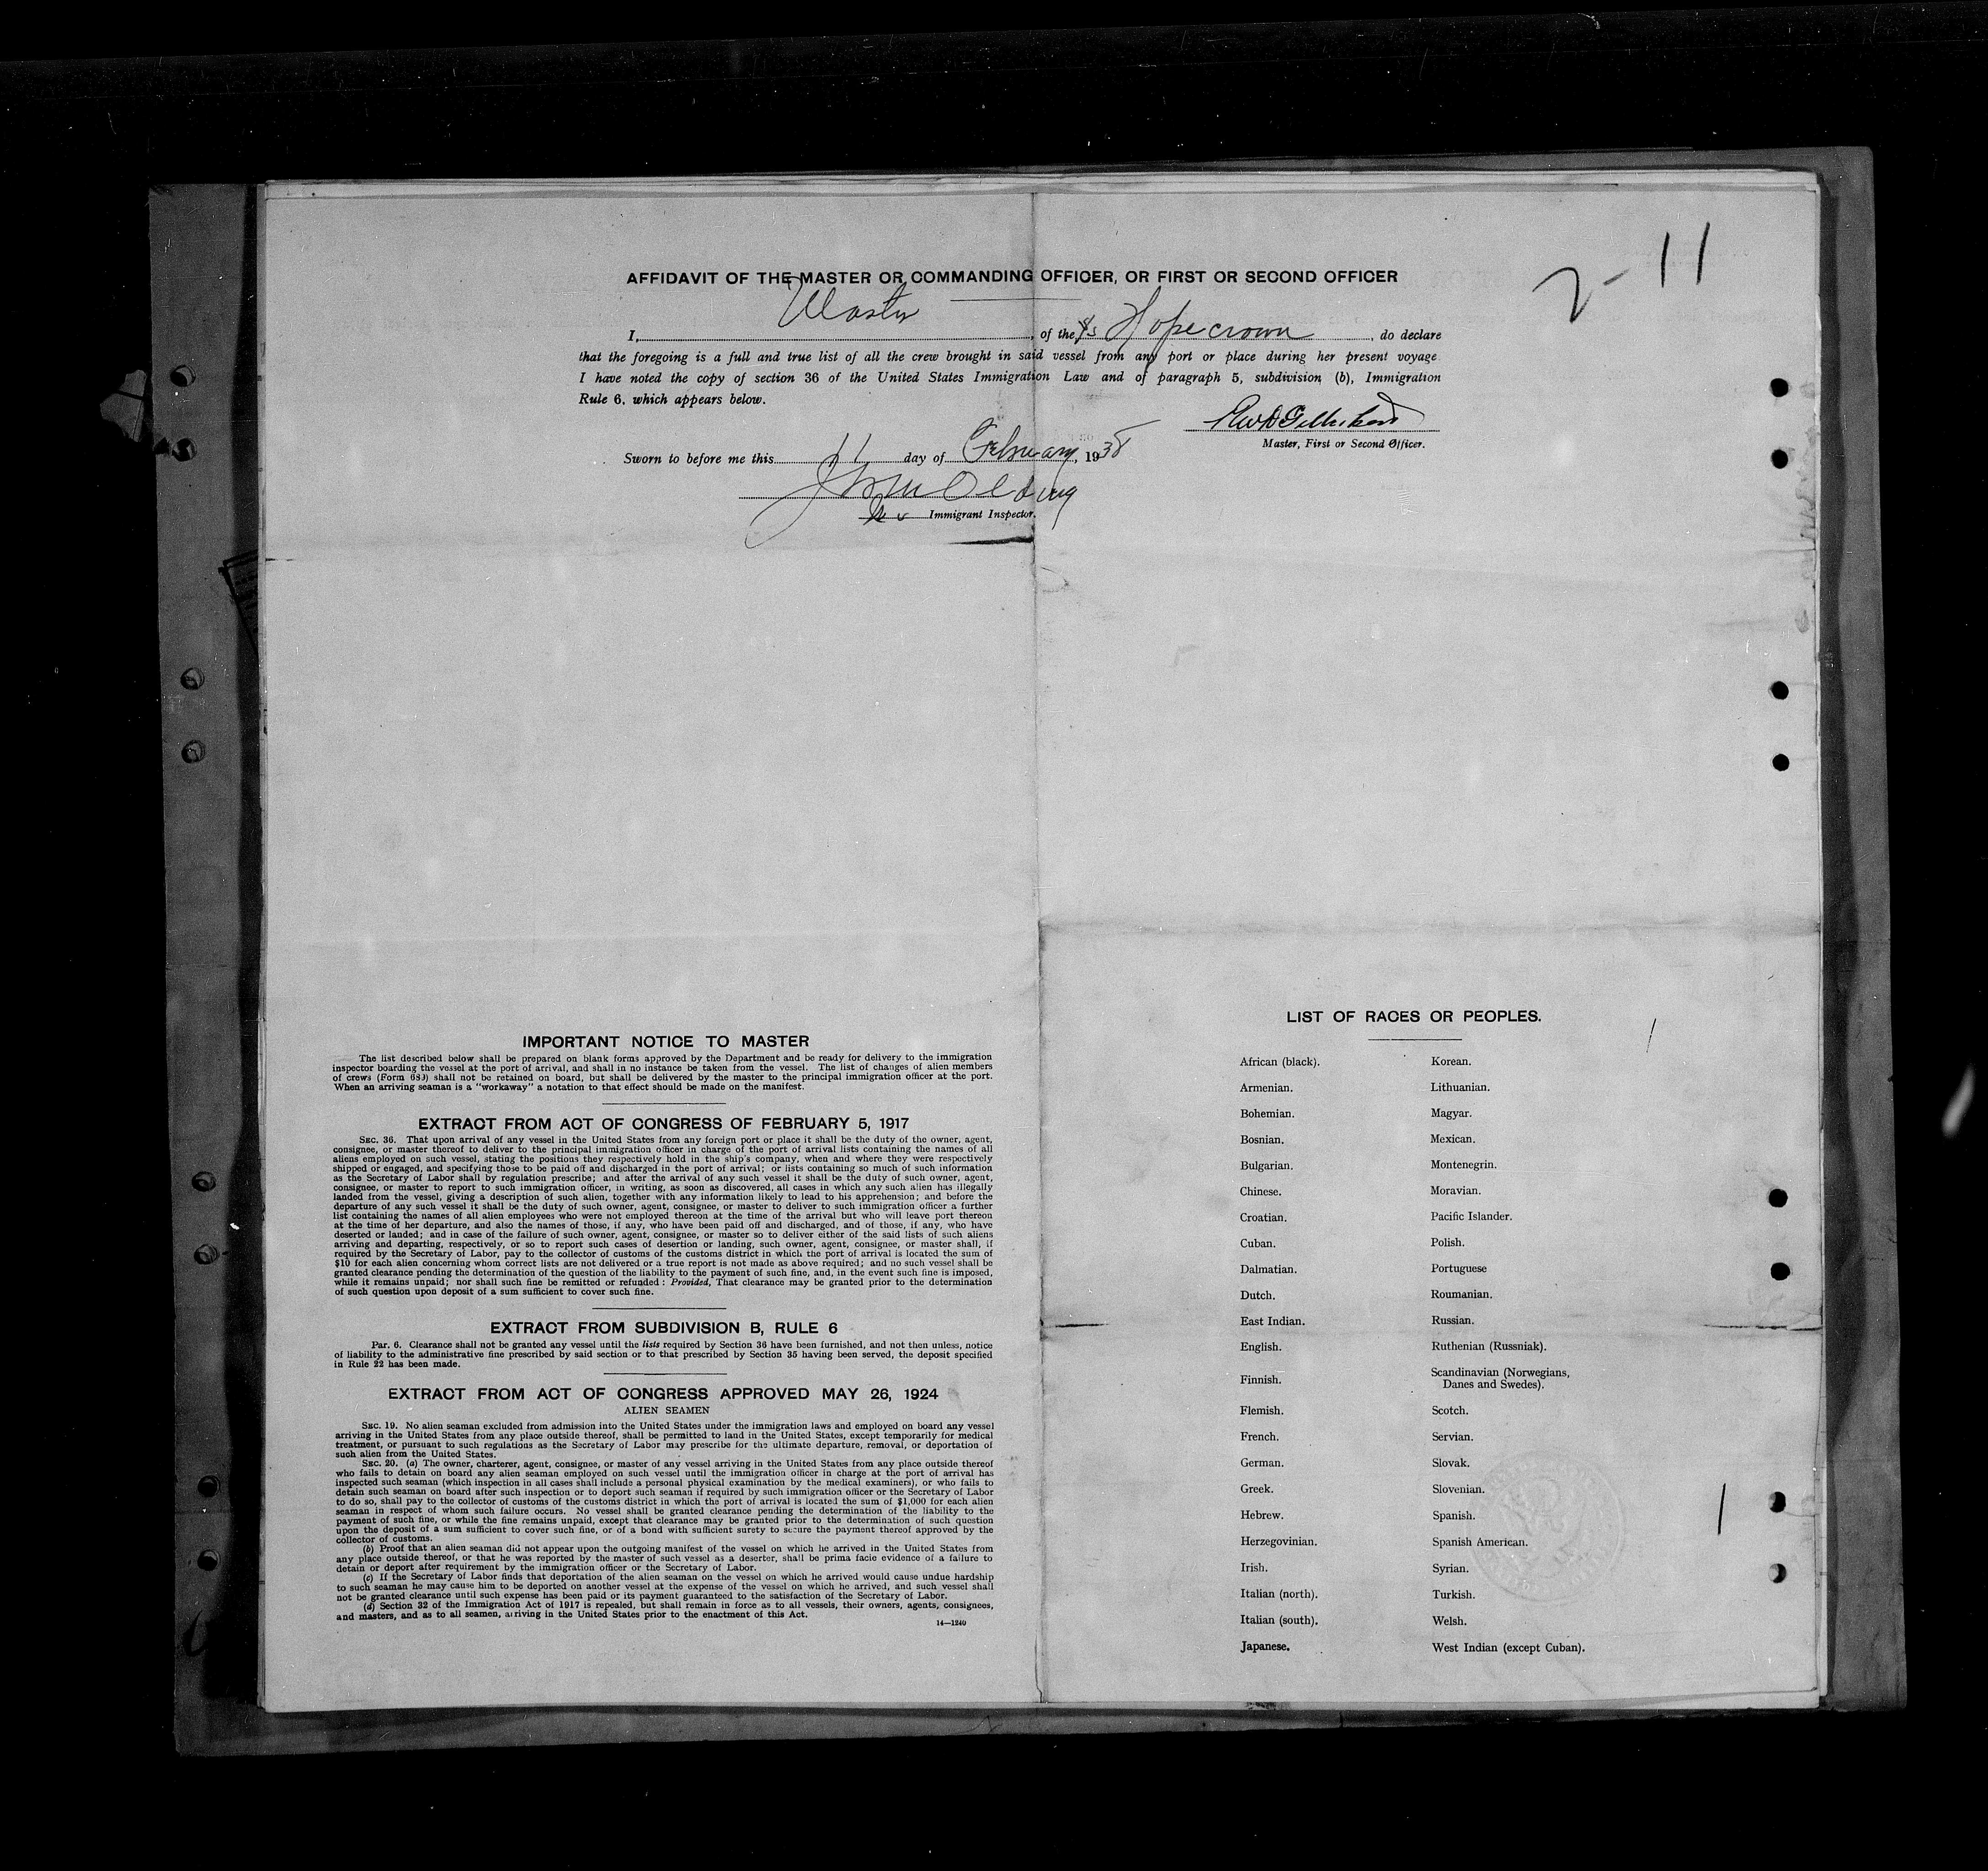 2-11
AFFIDAVIT OF THE MASTER OR COMMANDING OFFICER, OR FIRST OR SECOND OFFICER
I, Master, of the S/s Hopecrown, do declare
that the foregoing is a full and true list of all the crew brought in said vessel from any port or place during her present voyage
I have noted the copy of section 36 of the United States Immigration Law and of paragraph 5, subdivision (b), Immigration
Rule 6, which appears below.
Master, First or Second Officer.
Sworn to before me this 11 day of February, 1938
Immigrant Inspector.
IMPORTANT NOTICE TO MASTER
The list described below shall be prepared on blank forms approved by the Department and be ready for delivery to the immigration
inspector boarding the vessel at the port of arrival, and shall in no instance be taken from the vessel. The list of changes of alien members
of crews (Form 689) shall not be retained on board, but shall be delivered by the master to the principal immigration officer at the port.
When an arriving seaman is a "workaway" a notation to that effect should be made on the manifest.
EXTRACT FROM ACT OF CONGRESS OF FEBRUARY 5, 1917
SEC. 36. That upon arrival of any vessel in the United States from any foreign port or place it shall be the duty of the owner, agent,
consignee, or master thereof to deliver to the principal immigration officer in charge of the port of arrival lists containing the names of all
aliens employed on such vessel, stating the positions they respectively hold in the ship's company, when and where they were respectively
shipped or engaged, and specifying those to be paid off and discharged in the port of arrival; or lists containing so much of such information
as the Secretary of Labor shall by regulation prescribe; and after the arrival of any such vessel it shall be the duty of such owner, agent,
consignee, or master to report to such immigration officer, in writing, as soon as discovered, all cases in which any such alien has illegally
landed from the vessel, giving a description of such alien, together with any information likely to lead to his apprehension; and before the
departure of any such vessel it shall be the duty of such owner, agent, consignee, or master to deliver to such immigration officer a further
list containing the names of all alien employees who were not employed thereon at the time of the arrival but who will leave port thereon
at the time of her departure, and also the names of those, if any, who have been paid off and discharged, and of those, if any, who have
deserted or landed; and in case of the failure of such owner, agent, consignee, or master so to deliver either of the said lists of such aliens
arriving and departing, respectively, or so to report such cases of desertion or landing, such owner, agent, consignee, or master shall, if
required by the Secretary of Labor, pay to the collector of customs of the customs district in which the port of arrival is located the sum of
$10 for each alien concerning whom correct lists are not delivered or a true report is not made as above required; and no such vessel shall be
granted clearance pending the determination of the question of the liability to the payment of such fine, and, in the event such fine is imposed,
while it remains unpaid; nor shall such fine be remitted or refunded: Provided, That clearance may be granted prior to the determination
of such question upon deposit of a sum sufficient to cover such fine.
EXTRACT FROM SUBDIVISION B, RULE 6
PAR. 6. Clearance shall not be granted any vessel until the lists required by Section 36 have been furnished, and not then unless, notice
of liability to the administrative fine prescribed by said section or to that prescribed by Section 35 having been served, the deposit specified
in Rule 22 has been made.
EXTRACT FROM ACT OF CONGRESS APPROVED MAY 26, 1924
ALIEN SEAMEN
SEC. 19. No alien seaman excluded from admission into the United States under the immigration laws and employed on board any vessel
arriving in the United States from any place outside thereof, shall be permitted to land in the United States, except temporarily for medical
treatment, or pursuant to such regulations as the Secretary of Labor may prescribe for the ultimate departure, removal, or deportation of
such alien from the United States.
SEC. 20. (a) The owner, charterer, agent, consignee, or master of any vessel arriving in the United States from any place outside thereof
who fails to detain on board any alien seaman employed on such vessel until the immigration officer in charge at the port of arrival has
inspected such seaman (which inspection in all cases shall include a personal physical examination by the medical examiners), or who fails to
detain such seaman on board after such inspection or to deport such seaman if required by such immigration officer or the Secretary of Labor
to do so, shall pay to the collector of customs of the customs district in which the port of arrival is located the sum of $1,000 for each alien
seaman in respect of whom such failure occurs. No vessel shall be granted clearance pending the determination of the liability to the
payment of such fine, or while the fine remains unpaid, except that clearance may be granted prior to the determination of such question
upon the deposit of a sum sufficient to cover such fine, or of a bond with sufficient surety to secure the payment thereof approved by the
collector of customs.
(b) Proof that an alien seaman did not appear upon the outgoing manifest of the vessel on which he arrived in the United States from
any place outside thereof, or that he was reported by the master of such vessel as a deserter, shall be prima facie evidence of a failure to
detain or deport after requirement by the immigration officer or the Secretary of Labor.
(c) If the Secretary of Labor finds that deportation of the alien seaman on the vessel on which he arrived would cause undue hardship
to such seaman he may cause him to be deported on another vessel at the expense of the vessel on which he arrived, and such vessel shall
not be granted clearance until such expense has been paid or its payment guaranteed to the satisfaction of the Secretary of Labor.
(d) Section 32 of the Immigration Act of 1917 is repealed, but shall remain in force as to all vessels, their owners, agents, consignees,
and masters, and as to all seamen, arriving in the United States prior to the enactment of this Act.
14—1240
LIST OF RACES OR PEOPLES.
African (black).
Armenian.
Bohemian.
Bosnian.
Bulgarian.
Chinese.
Croatian.
Cuban.
Dalmatian.
Dutch.
East Indian.
English.
Finnish.
Flemish.
French.
German.
Greek.
Hebrew.
Herzegovinian.
Irish.
Italian (north).
Italian (south).
Japanese.
Korean.
Lithuanian.
Magyar.
Mexican.
Montenegrin.
Moravian.
Pacific Islander.
Polish.
Portuguese
Roumanian.
Russian.
Ruthenian (Russniak).
Scandinavian (Norwegians,
Danes and Swedes).
Scotch.
Servian.
Slovak.
Slovenian.
Spanish.
Spanish American.
Syrian.
Turkish.
Welsh.
West Indian (except Cuban).